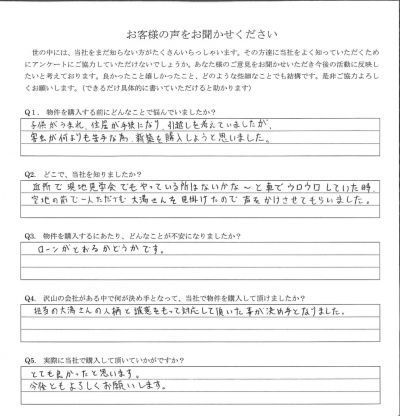 お客様の声をお聞かせください
世の中には、当社をまだ知らない方がたくさんいらっしゃいます。その方達に当社をよく知っていただくため
にアンケートにご協力していただけないでしょうか。あなた様のご意見をお聞かせいただき今後の活動に反映し
たいと考えております。良かったこと嬉しかったこと、どのような些細なことでも結構です。是非ご協力よろし
くお願いします。（できるだけ具体的に書いていただけると助かります）
Q1. 物件を購入する前にどんなことで悩んでいましたか？
子供がうまれ、住居が手狭になり、引越しを考えていましたが、
害虫が何よりも苦手な為、新築を購入しようと思いました。
Q2. どこで、当社を知りましたか？
近所で現地見学会でもやっている所はないかな～と車でウロウロしていた時、
空地の前で一人たたずむ大澤さんを見掛けたので声をかけさせてもらいました。
Q3. 物件を購入するにあたり、どんなことが不安になりましたか？
ローンがとれるかどうかです。
Q4. 沢山の会社がある中で何が決め手となって、当社で物件を購入して頂けましたか？
担当の大澤さんの人柄と誠意をもって対応して頂いた事が決め手となりました。
Q5. 実際に当社で購入して頂いていかがですか？
とても良かったと思います。
今後ともよろしくお願いします。